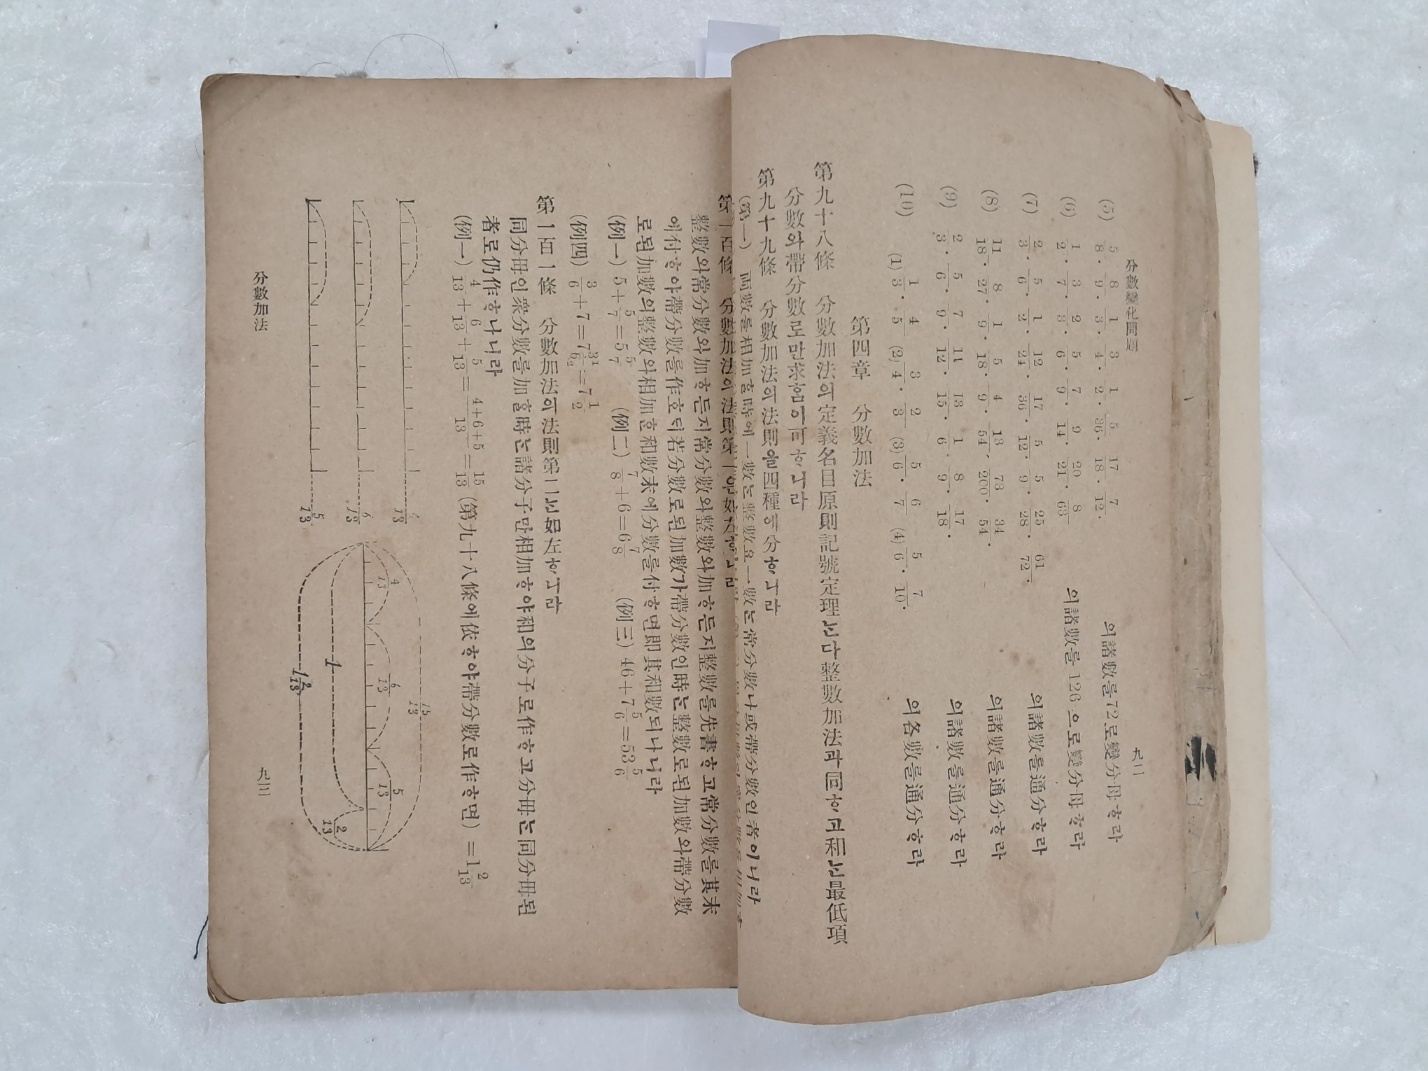 分數變化問題 九二
(5) 5/8. 8/9. 1/3. 3/4. 1/2. 5/36. 17/18. 7/12. 의諸數를72로變分母ᄒᆞ라
(6) 1/2. 3/7. 2/3. 5/6. 7/9. 9/14. 20/21. 8/63 의諸數를 126 으로變分母ᄒᆞ라
(7) 2/3. 5/6. 1/2. 12/24. 17/36. 5/12. 5/9. 25/28. 61/72. 의諸數를通分ᄒᆞ라
(8) 11/18. 8/27. 1/9. 5/18. 4/9. 13/54. 73/200. 34/54. 의諸數를通分ᄒᆞ라
(9) 2/3. 5/6. 7/9. 11/12. 13/15. 1/6. 8/9. 17/18. 의諸數를通分ᄒᆞ라
(10) (1) 1/3. 4/5 (2) 3/4. 2/3 (3) 5/6. 6/7 (4) 5/6. 7/10. 의各數를通分ᄒᆞ라
第四章 分數加法
第九十八條 分數加法의定義名目原則記號定理ᄂᆞᆫ다整數加法과同ᄒᆞ고和ᄂᆞᆫ最低項
分數와帶分數로만求홈이可ᄒᆞ니라
第九十九條 分數加法의法則을四種에分ᄒᆞ니라
(第一) 兩數를相加ᄒᆞᆯ時에一數ᄂᆞᆫ整數요一數ᄂᆞᆫ常分數나或帶分數인者이니라
第一百條 分數加法의法則第一은如左ᄒᆞ니라
整數와常分數와加ᄒᆞ든지常分數와整數와加ᄒᆞ든지整數를先書ᄒᆞ고常分數를其末
에付ᄒᆞ야帶分數를作호ᄃᆡ若分數로된加數가帶分數인時ᄂᆞᆫ整數로된加數와帶分數
로된加數의整數와相加ᄒᆞᆫ和數末에分數를付ᄒᆞ면即其和數되나니라
(例一) 5+5/7=5 5/7 (例二) 7/8+6=6 7/8 (例三) 46+7 5/6=53 5/6
(例四) 3/6+7=7 3/6=7 1/2
第一百一條 分數加法의法則第二ᄂᆞᆫ如左ᄒᆞ니라
同分母인衆分數를加ᄒᆞᆯ時ᄂᆞᆫ諸分子만相加ᄒᆞ야和의分子로作ᄒᆞ고分母ᄂᆞᆫ同分母된
者로仍作ᄒᆞ나니라
(例一) 4/13+6/13+5/13=4+6+5/13=15/13 (第九十八條에依ᄒᆞ야帶分數로作ᄒᆞ면) =1 2/13
4/13
6/13
5/13
15/13
4/13
6/13
5/13
1
2/13
1 2/13
分數加法 九三